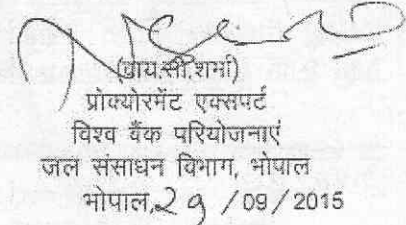 (वाय.सी.शर्मा)
प्रोक्योरमेंट एक्सपर्ट
विश्व बैंक परियोजनाएं
जल संसाधन विभाग, भोपाल
भोपाल,29 /09/2015